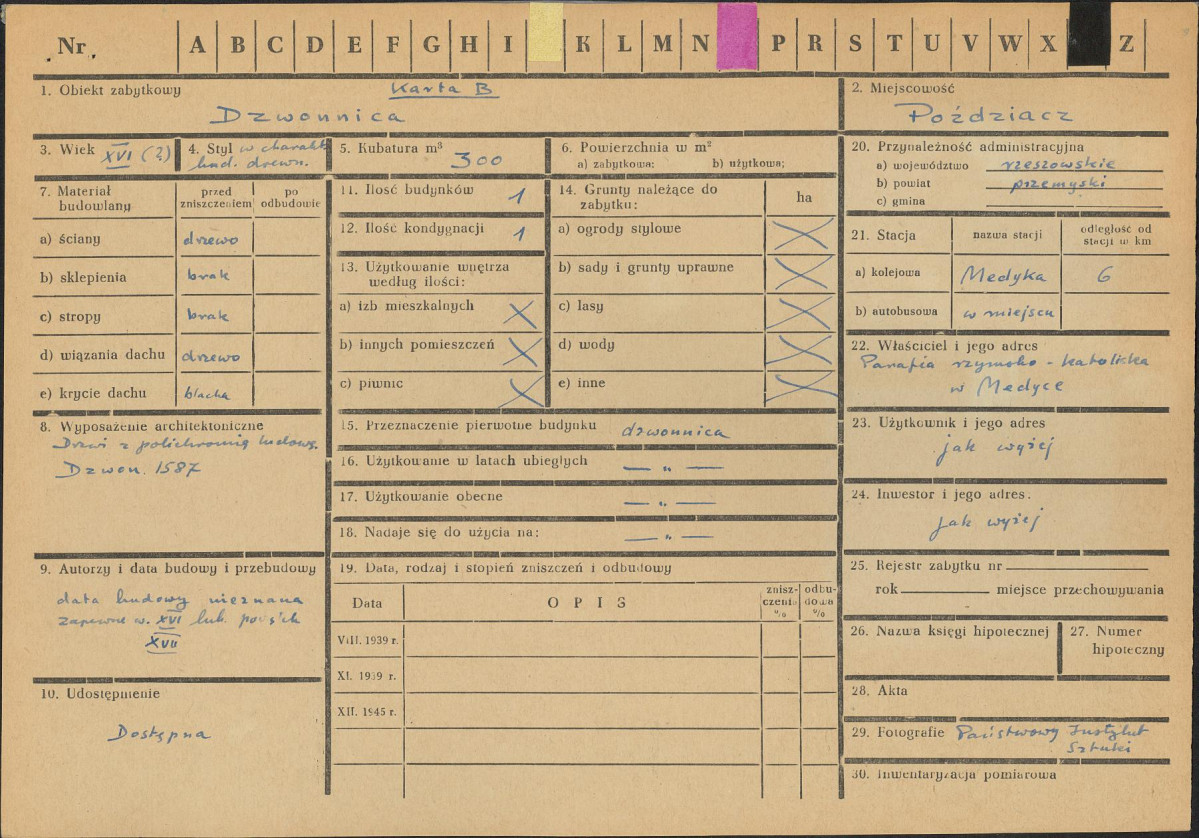 Nr. A B C D E F G H I K L M N P R S T U V W X Z
1. Obiekt zabytkowy Karta B
Dzwonnica
2. Miejscowość
Poździacz
3. Wiek XVI (?)
4. Styl w charakt.
bud. drewn.
5. Kubatura m³ 300
6. Powierzchnia w m²
a) zabytkowa: b) użytkowa:
20. Przynależność administracyjna
a) województwo rzeszowskie
b) powiat przemyski
c) gmina
7. Materiał budowlany
przed zniszczeniem
po odbudowie
a) ściany drzewo
b) sklepienia brak
c) stropy brak
d) wiązania dachu drzewo
e) krycie dachu blacha
8. Wyposażenie architektoniczne
Drzwi z polichromią ludową.
Dzwon. 1587
9. Autorzy i data budowy i przebudowy
data budowy nieznana
zapewne w. XVI lub
XVII
10. Udostępnienie
Dostępna
11. Ilość budynków 1
12. Ilość kondygnacji 1
13. Użytkowanie wnętrza
według ilości:
a) izb mieszkalnych
b) innych pomieszczeń
c) piwnic
14. Grunty należące do
zabytku:
ha
a) ogrody stylowe
b) sady i grunty uprawne
c) lasy
d) wody
e) inne
15. Przeznaczenie pierwotne budynku dzwonnica
16. Użytkowanie w latach ubiegłych — „ —
17. Użytkowanie obecne — „ —
18. Nadaje się do użycia na: — „ —
19. Data, rodzaj i stopień zniszczeń i odbudowy
Data OPIS
znisz-
czenia
%
odbu-
dowa
%
VIII. 1939 r.
XI. 1939 r.
XII. 1945 r.
21. Stacja
nazwa stacji
odległość od
stacji w km
a) kolejowa Medyka 6
b) autobusowa w miejscu
22. Właściciel i jego adres
Parafia rzymsko-katolicka
w Medyce
23. Użytkownik i jego adres
jak wyżej
24. Inwestor i jego adres.
jak wyżej
25. Rejestr zabytku nr
rok miejsce przechowywania
26. Nazwa księgi hipotecznej
27. Numer
hipoteczny
28. Akta
29. Fotografie Państwowy Instytut
Sztuki
30. Inwentaryzacja pomiarowa